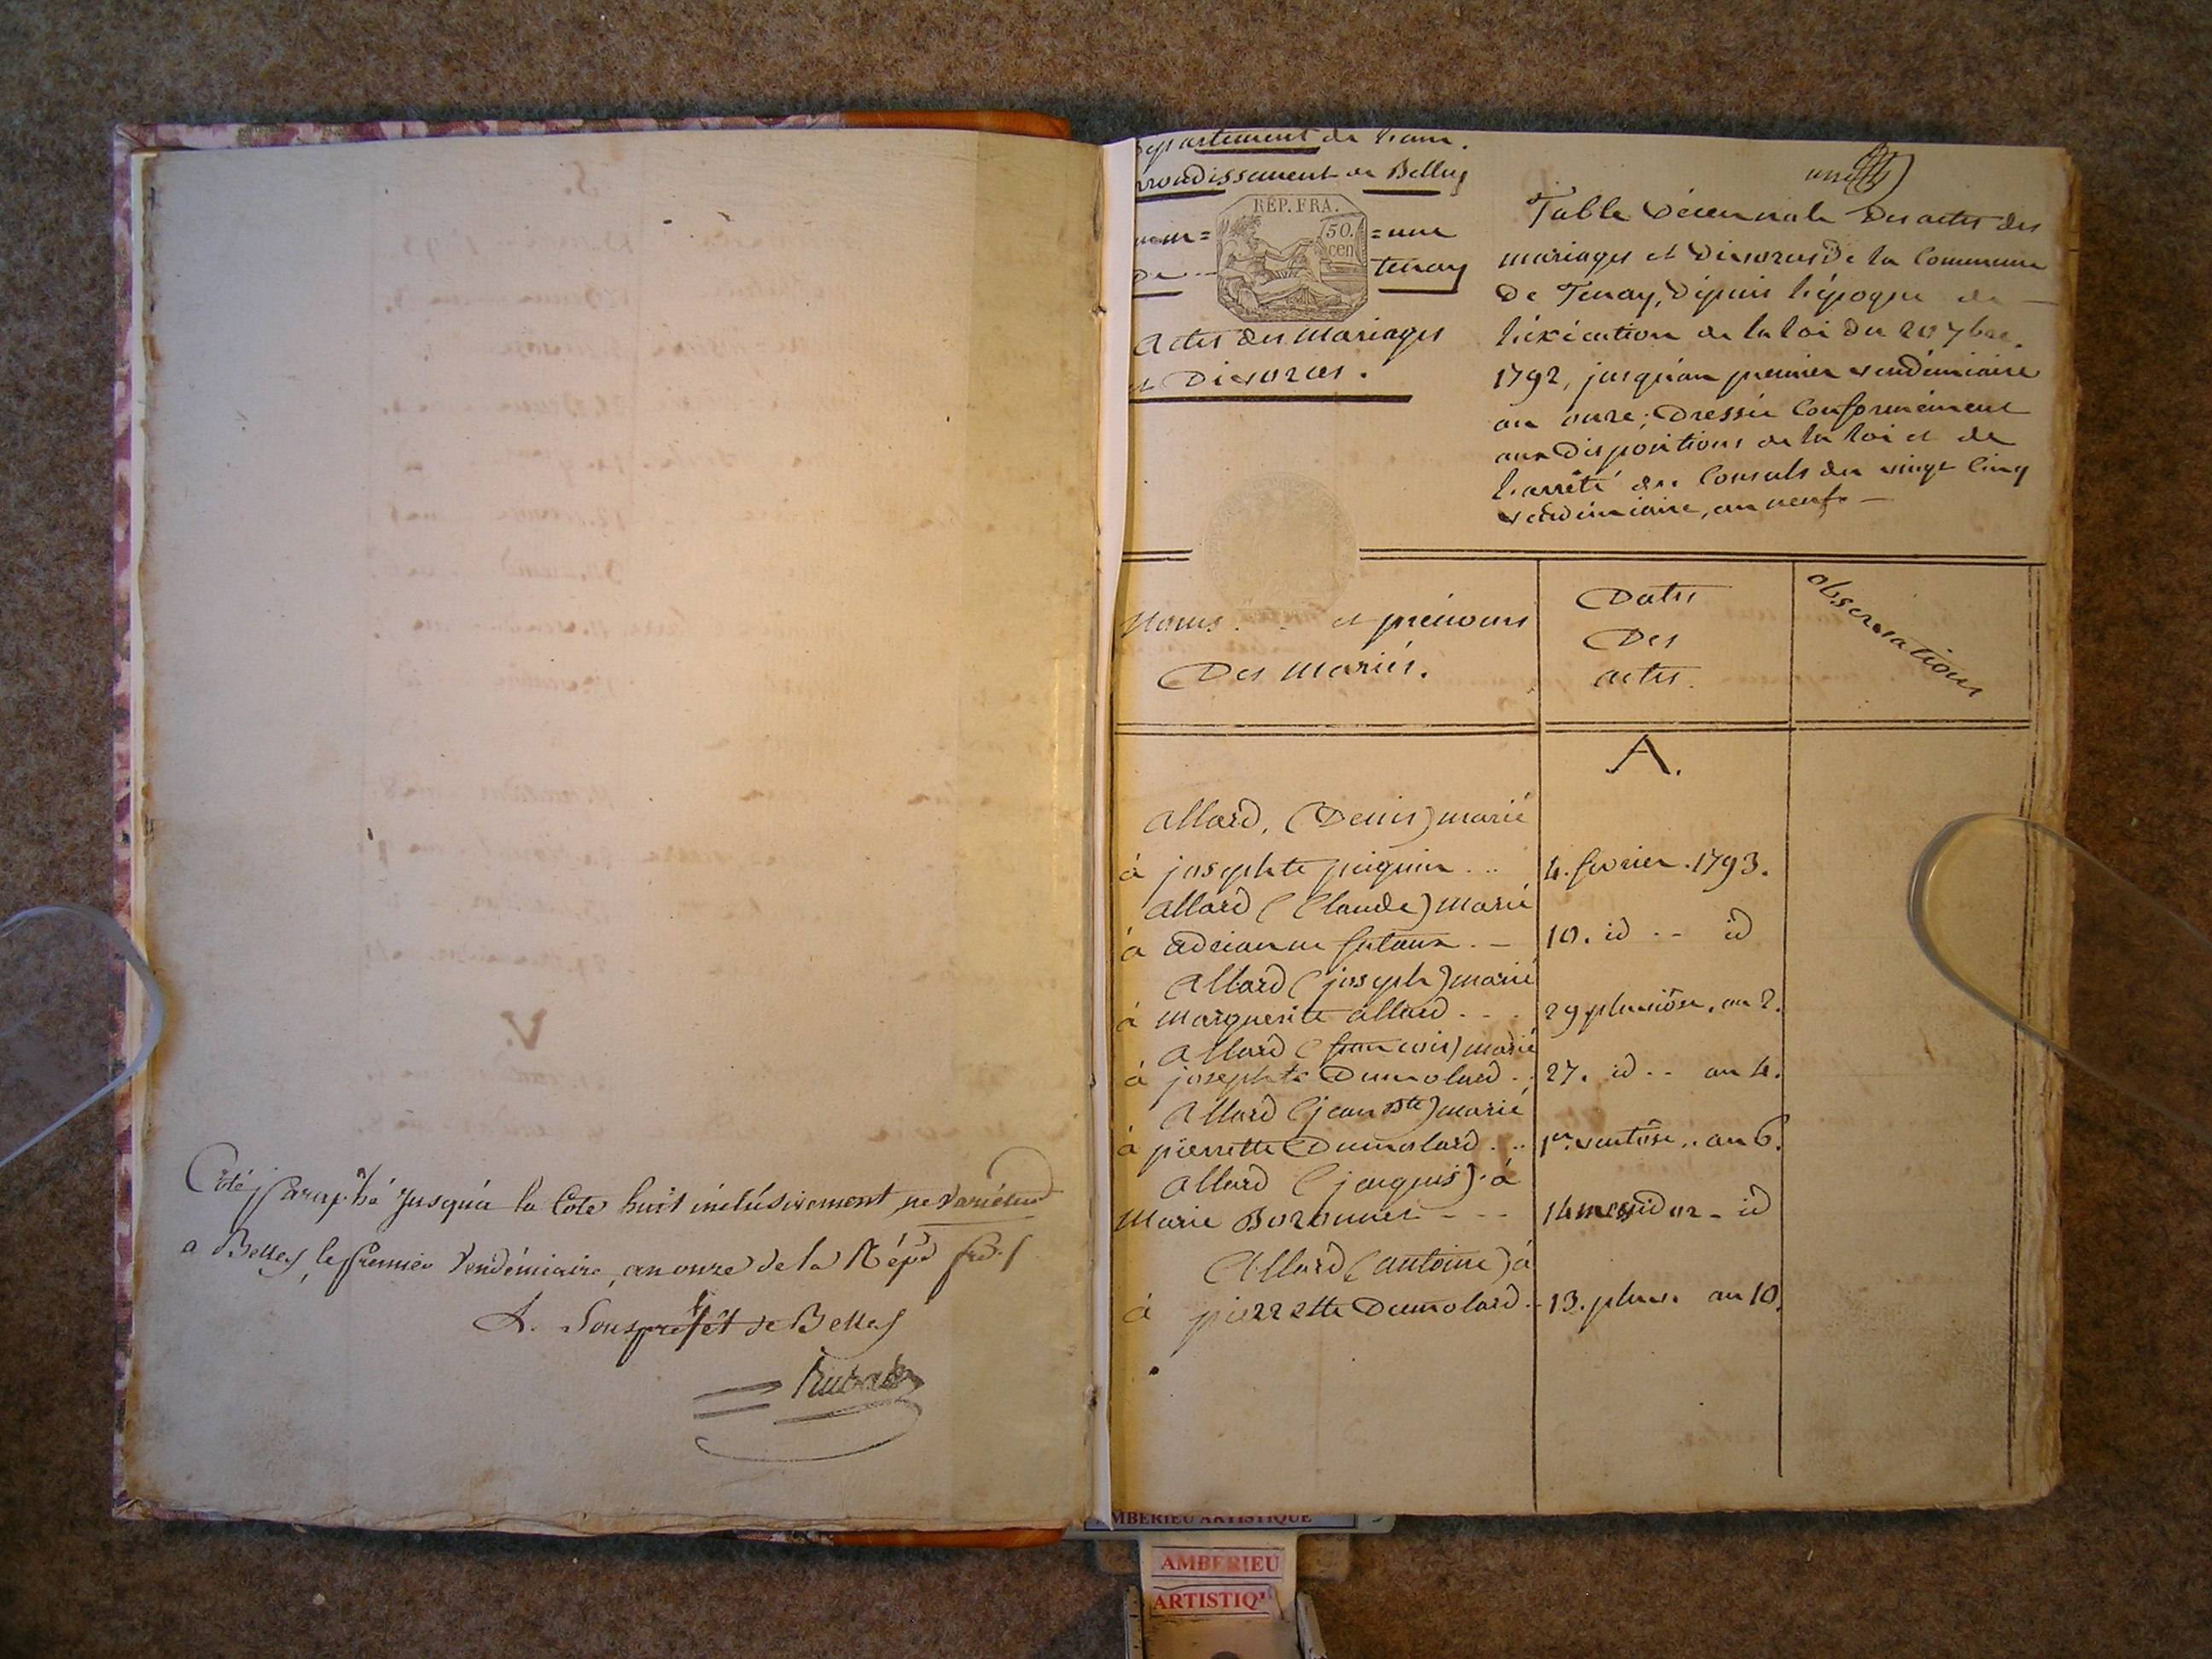 Coté, Paraphé Jusqu'à la Cote huit inclusivement, ne varietur
a Belley, le premier Vendémiaire, an onze de la Répe fr.
Le Sousprefêt de Belley
Département de l'ain.
arrondissement de Belley
REP. FRA.
50.
cen
= une
de
tenay
actes des mariages
et Divorces.
Table Décennale Des actes des
mariages et Divorces De la Commune
De Tenay, Dépuis l'époque de
l'éxécution de la loi du 20 7bre.
1792, jusqu'au premier vendémiaire
an onze; Dressée Conformément
aux Dispositions de la loi et de
l'arrêté des Consuls du vingt Cinq
vendémiaire, an neuf.
Noms et prénoms
Des mariés.
Dates
Des
actes.
observations
A.
allard, (Denis) marié
à josephte peiguin ... 4. fevrier. 1793.
allard (Claude) marié
à adrianne - 10. id -- id
allard (joseph) marié
à marguerite allard ... 29 pluviôse. an 2.
allard (francois) marié
à josephte Dumolard .. 27. id .. an 4.
allard (jean Bte) marié
à pierrette Dumolard ... 1er ventôse .. an 6.
allard (jacques) à
Marie Bozonnet - - - 14 messidor - id
allard (antoine) à
à pierrette Dumolard .. 13. pluv. an 10.
AMBERIEU ARTISTIQUE
AMBERIEU
ARTISTIQ'